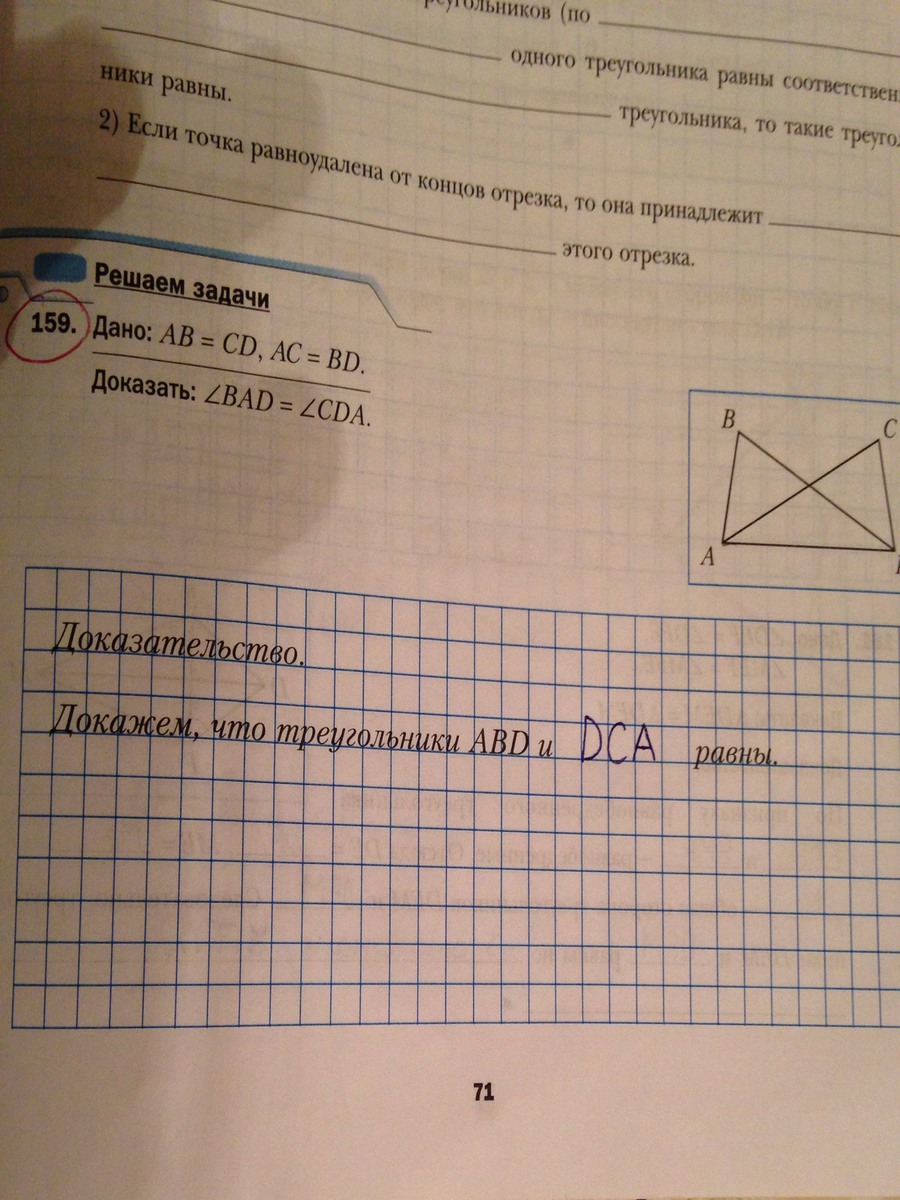 (по
одного треугольника равны
ники равны.
треугольника, то такие
2) Если точка равноудалена от концов отрезка, то она принадлежит
этого отрезка.
Решаем задачи
159. Дано: AB = CD, AC = BD.
Доказать: ∠BAD = ∠CDA.
B
C
A
Доказательство.
Докажем, что треугольники ABD и DCA равны.
71